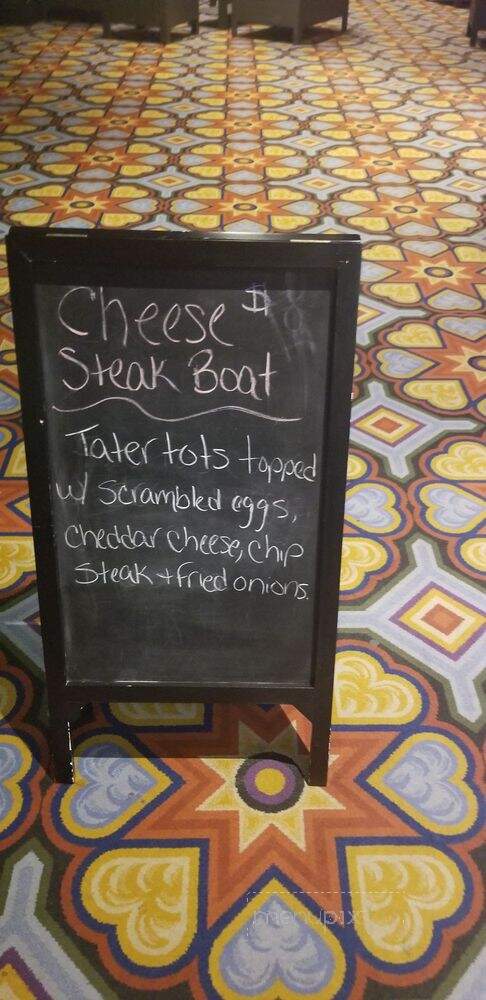 Cheese $8
Steak Boat
Tater tots topped
w/ scrambled eggs,
cheddar cheese, chip
Steak + fried onions.